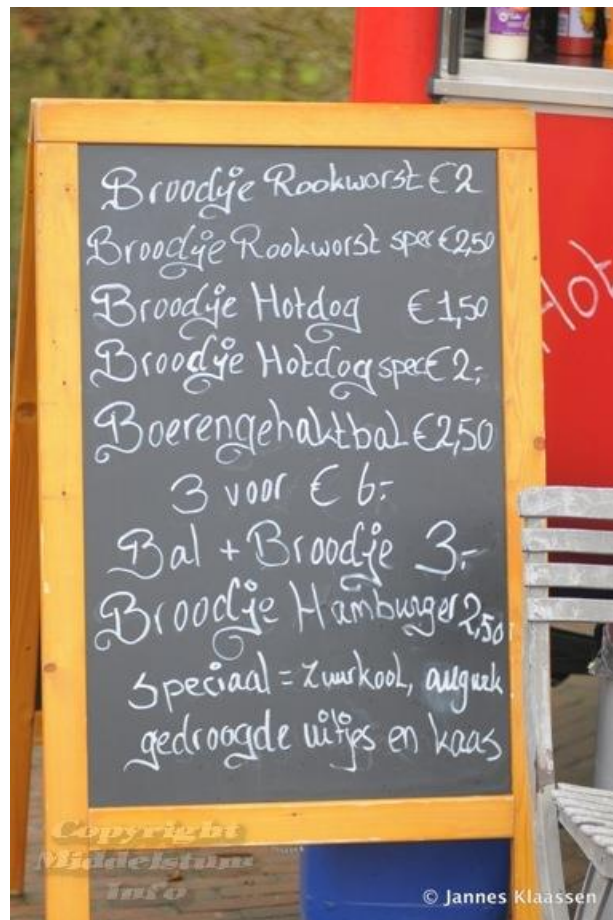 Broodje Rookworst €2
Broodje Rookworst spec €2,50
Broodje Hotdog €1,50
Broodje Hotdog spec €2,-
Boerengehaktbal €2,50
3 voor € 6,-
Bal + Broodje 3,-
Broodje Hamburger 2,50
Speciaal = Zuurkool, augurk
gedroogde uitjes en kaas
Hot
Copyright
Middelstum
Info
© Jannes Klaassen